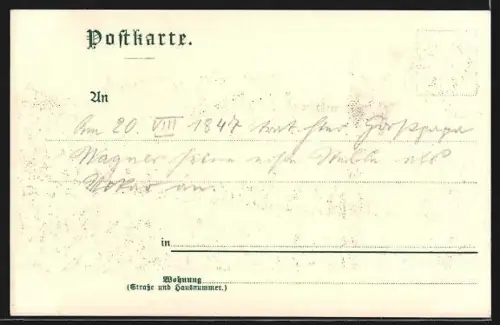 Postkarte.
An
Am 20. VIII 1847 trat hier Großpapa
Wagner seine erste Stelle als
Vikar an.
in
Wohnung
(Straße und Hausnummer.)